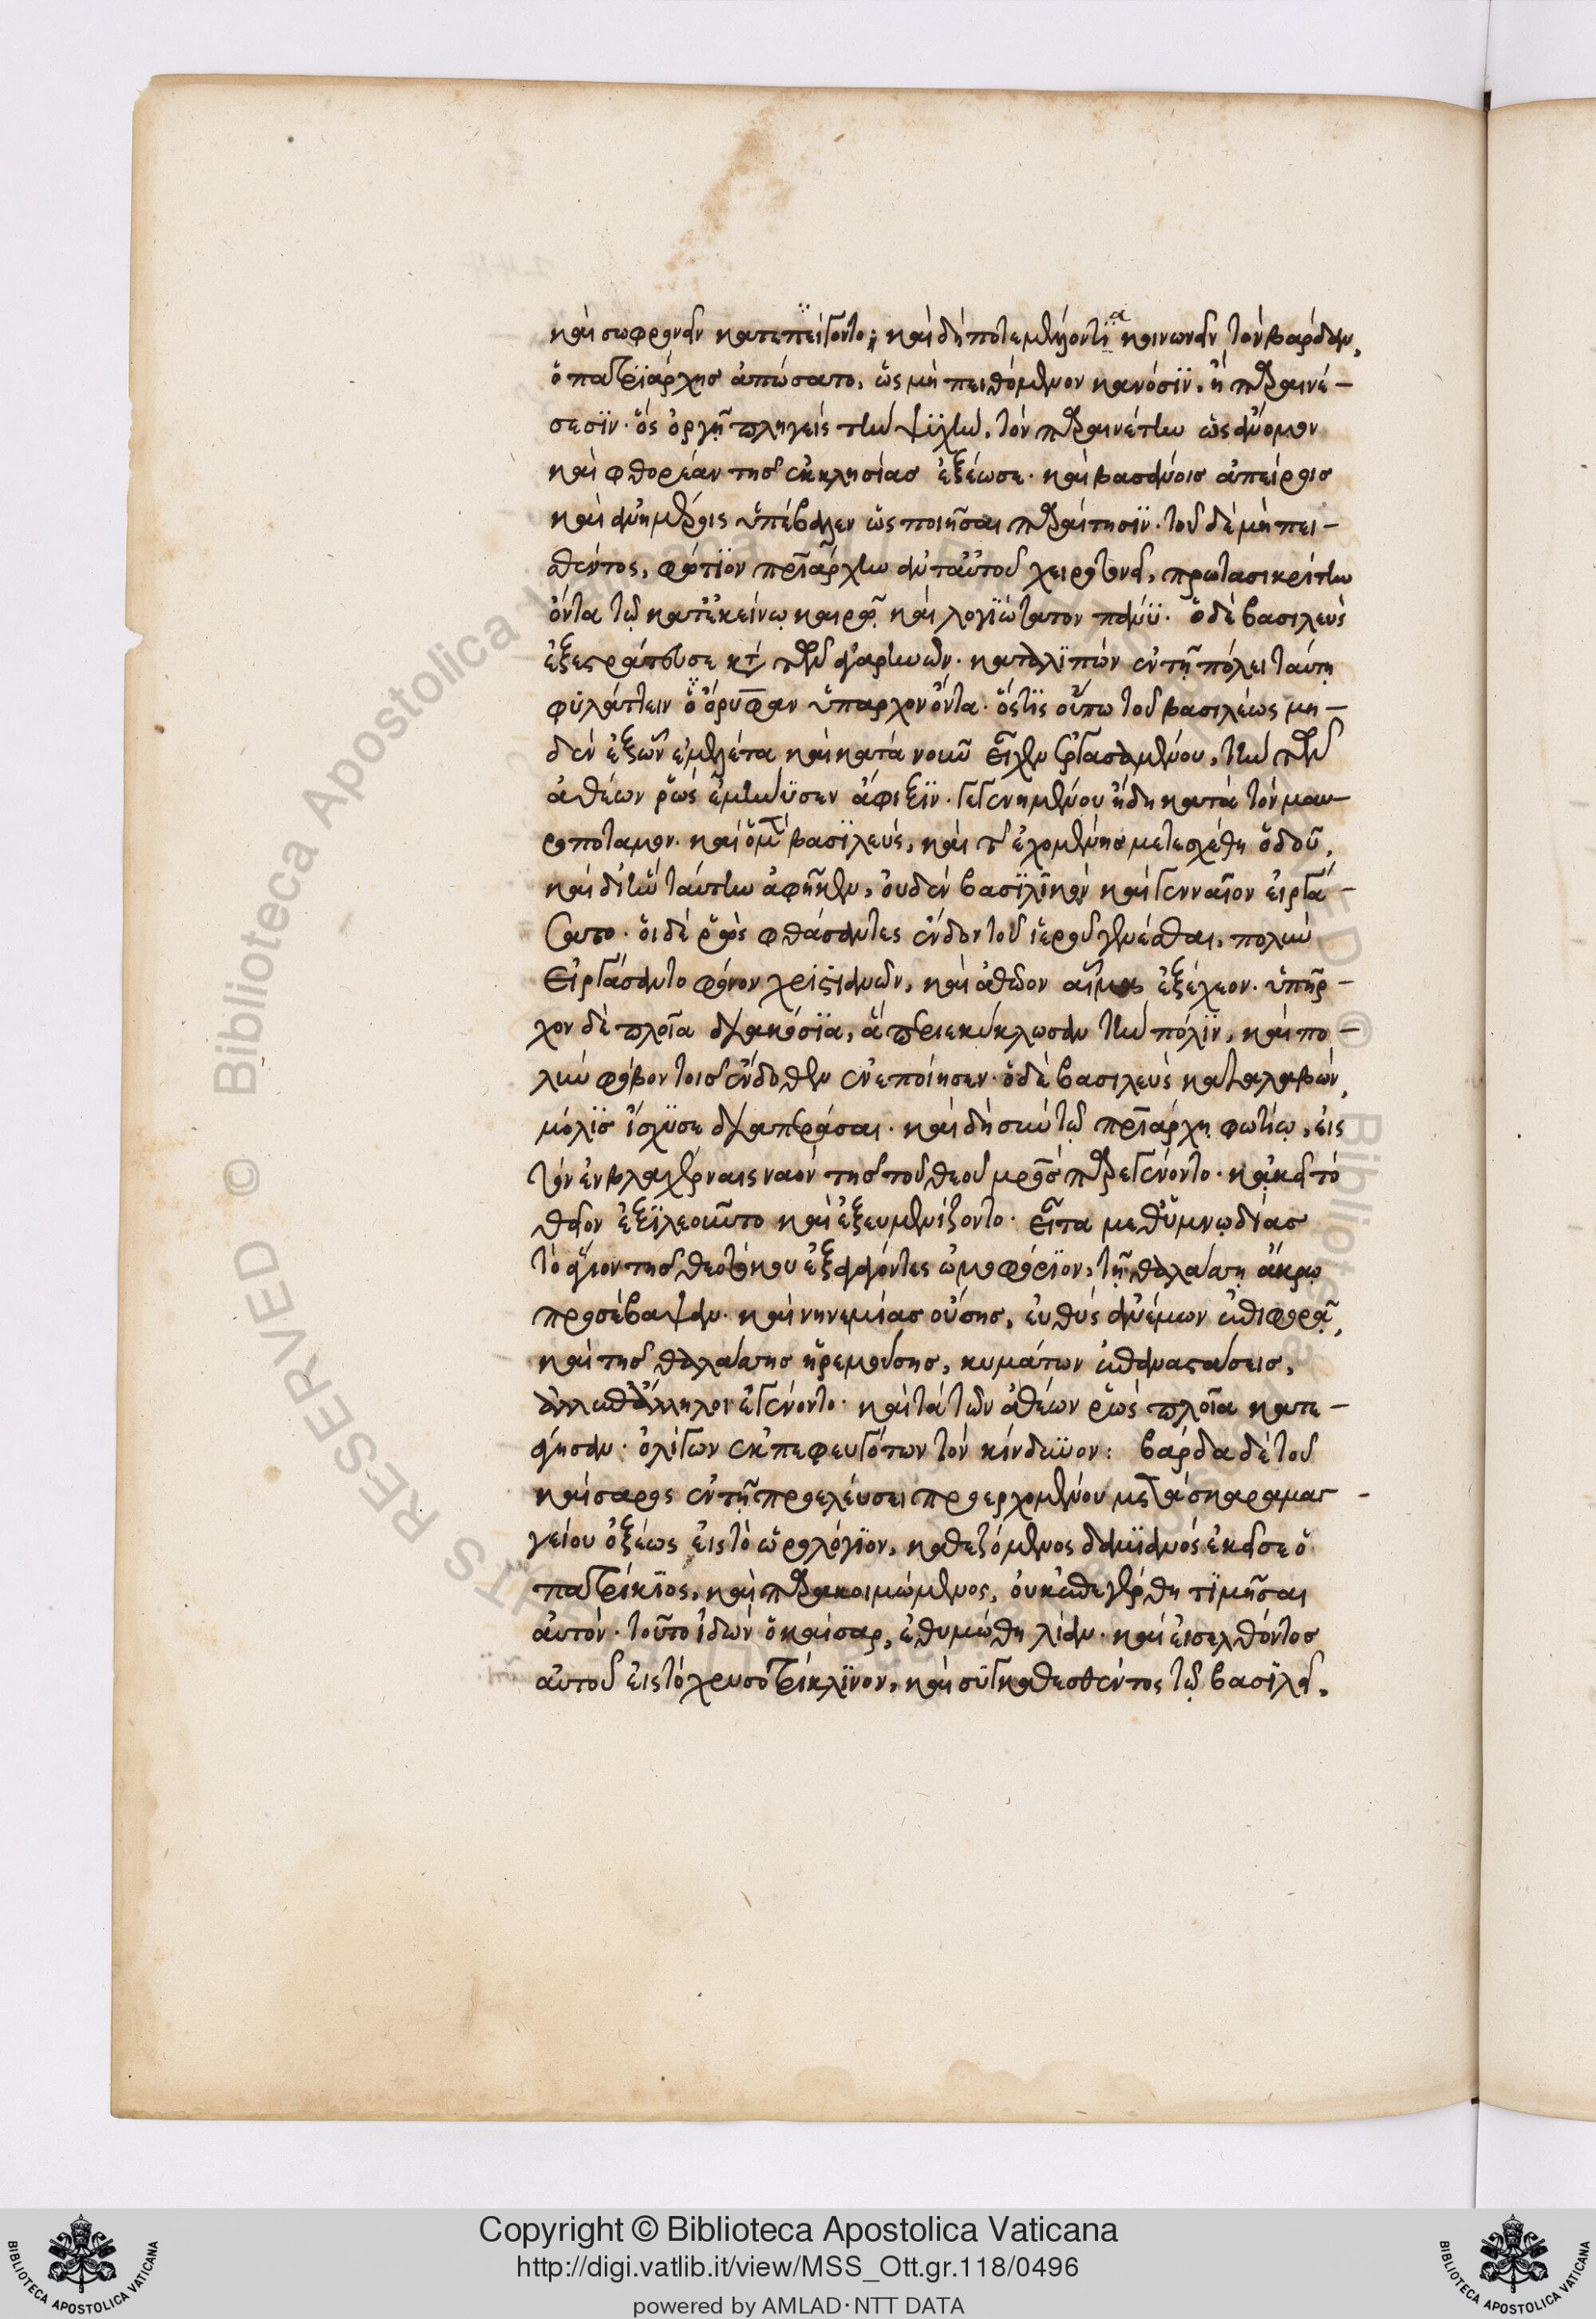 καὶ σωφρονεῖν κατεπείγοντο; καὶ δήποτε μέλλοντα κοινωνεῖν τὸν βάρδαν,
ὁ πατριάρχης ἀπώσατο, ὡς μὴ πειθόμενον κανόσϊν, ἢ παραινέ-
σεσϊν. ὃς ὀργῇ πληγεὶς τὴν ψϋχὴν, τὸν παραινέτην ὡς λύομον
καὶ φθορέαν τῆς ἐκκλησίας ἐξέωσε. καὶ βασάνοις ἀπείροις
καὶ ἀνημέροις ὑπέβαλεν ὡς ποιῆσαι παραίτησϊν. τοῦ δὲ μὴ πει-
θέντος, φώτϊον πριάρχην ἀντ' αὐτοῦ χειροτονεῖ, πρωτασικρίτην
ὄντα τῷ κατ' ἐκείνω καιρῷ καὶ λογϊώτατον πάνϋ. ὁ δὲ βασιλεὺς
ἐξεστράτευσε κατὰ τῶν ἀγαρηνῶν. καταλϊπὼν ἐν τῇ πόλει ταύτη
φϋλάττειν ὀορύφαν ὕπαρχον ὄντα. ὅστϊς οὔπω τοῦ βασιλέως μη-
δὲν ἐξ ὧν ἐμελέτα καὶ κατὰ νοῦν εἶχεν ἐργασαμένου, τὴν τῶν
ἀθέων ῥῶς ἐμήνϋσεν ἄφιξϊν. γεγενημένου ἤδη κατὰ τὸν μαυ-
ροπόταμον. καὶ ὁ μὲν βασϊλεὺς, καὶ τῆς ἐχομένης μετεσχέθη ὁδοῦ,
καὶ δι' ἣν ταύτην ἀφῆκεν, οὐδὲν βασϊλϊκὸν καὶ γενναῖον εἰργά-
σατο. οἱ δὲ ῥῶς φθάσαντες ἔνδον τοῦ ἱεροῦ γενέσθαι, πολὺν
εἰργάσαντο φόνον χριστιανῶν, καὶ ἀθῶον αἷμα ἐξέχεον. ὑπῆρ-
χον δὲ πλοῖα διακόσϊα, ἃ περιεκύκλωσαν τὴν πόλϊν, καὶ πο-
λὺν φόβον τοῖς ἔνδοθεν ἐνεποίησεν. ὁ δὲ βασιλεὺς καταλαβὼν,
μόλϊς ἴσχϋσε διαπεράσαι. καὶ δὴ σὺν τῷ πριάρχῃ φωτίῳ, εἰς
τὸν ἐν βλαχέρναις ναὸν τῆς τοῦ θεοῦ μρὸς παρεγένοντο. κἀκεῖ τὸ
θεῖον ἐξϊλεοῦντο καὶ ἐξευμενίζοντο. εἶτα μεθ' ὑμνῳδίας
τὸ ἅγιον τῆς θεοτόκου ἐξαγαγόντες ὠμοφόρϊον, τῇ θαλάσσῃ ἄκρῳ
προσέβαψαν. καὶ νηνεμίας οὔσης, εὐθὺς ἀνέμων ἐπιφορᾷ,
καὶ τῆς θαλάσσης ἠρεμούσης, κυμάτων ἐπαναστάσεις,
ἀλλεπάλληλοι ἐγένοντο. καὶ τὰ τῶν ἀθέων ῥῶς πλοῖα κατε-
άγησαν. ὀλίγων ἐκπεφευγότων τὸν κίνδυϋον: βάρδα δὲ τοῦ
καίσαρος ἐν τῇ προελεύσει προερχομένου μετὰ σκαραμαγ-
γείου ὀξέως εἰς τὸ ὡρολόγϊον, καθεζόμενος δαμϊανὸς ἐκεῖσε ὁ
πατρίκϊος, καὶ παρακοιμώμενος, οὐκ ἐπηγέρθη τϊμῆσαι
αὐτόν. τοῦτο ἰδὼν ὁ καίσαρ, ἐθυμώθη λίαν. καὶ εἰσελθόντος
αὐτοῦ εἰς τὸ χρυσοτρίκλϊνον, καὶ συγκαθεσθέντος τῷ βασϊλεῖ,
Copyright © Biblioteca Apostolica Vaticana
http://digi.vatlib.it/view/MSS_Ott.gr.118/0496
powered by AMLAD·NTT DATA